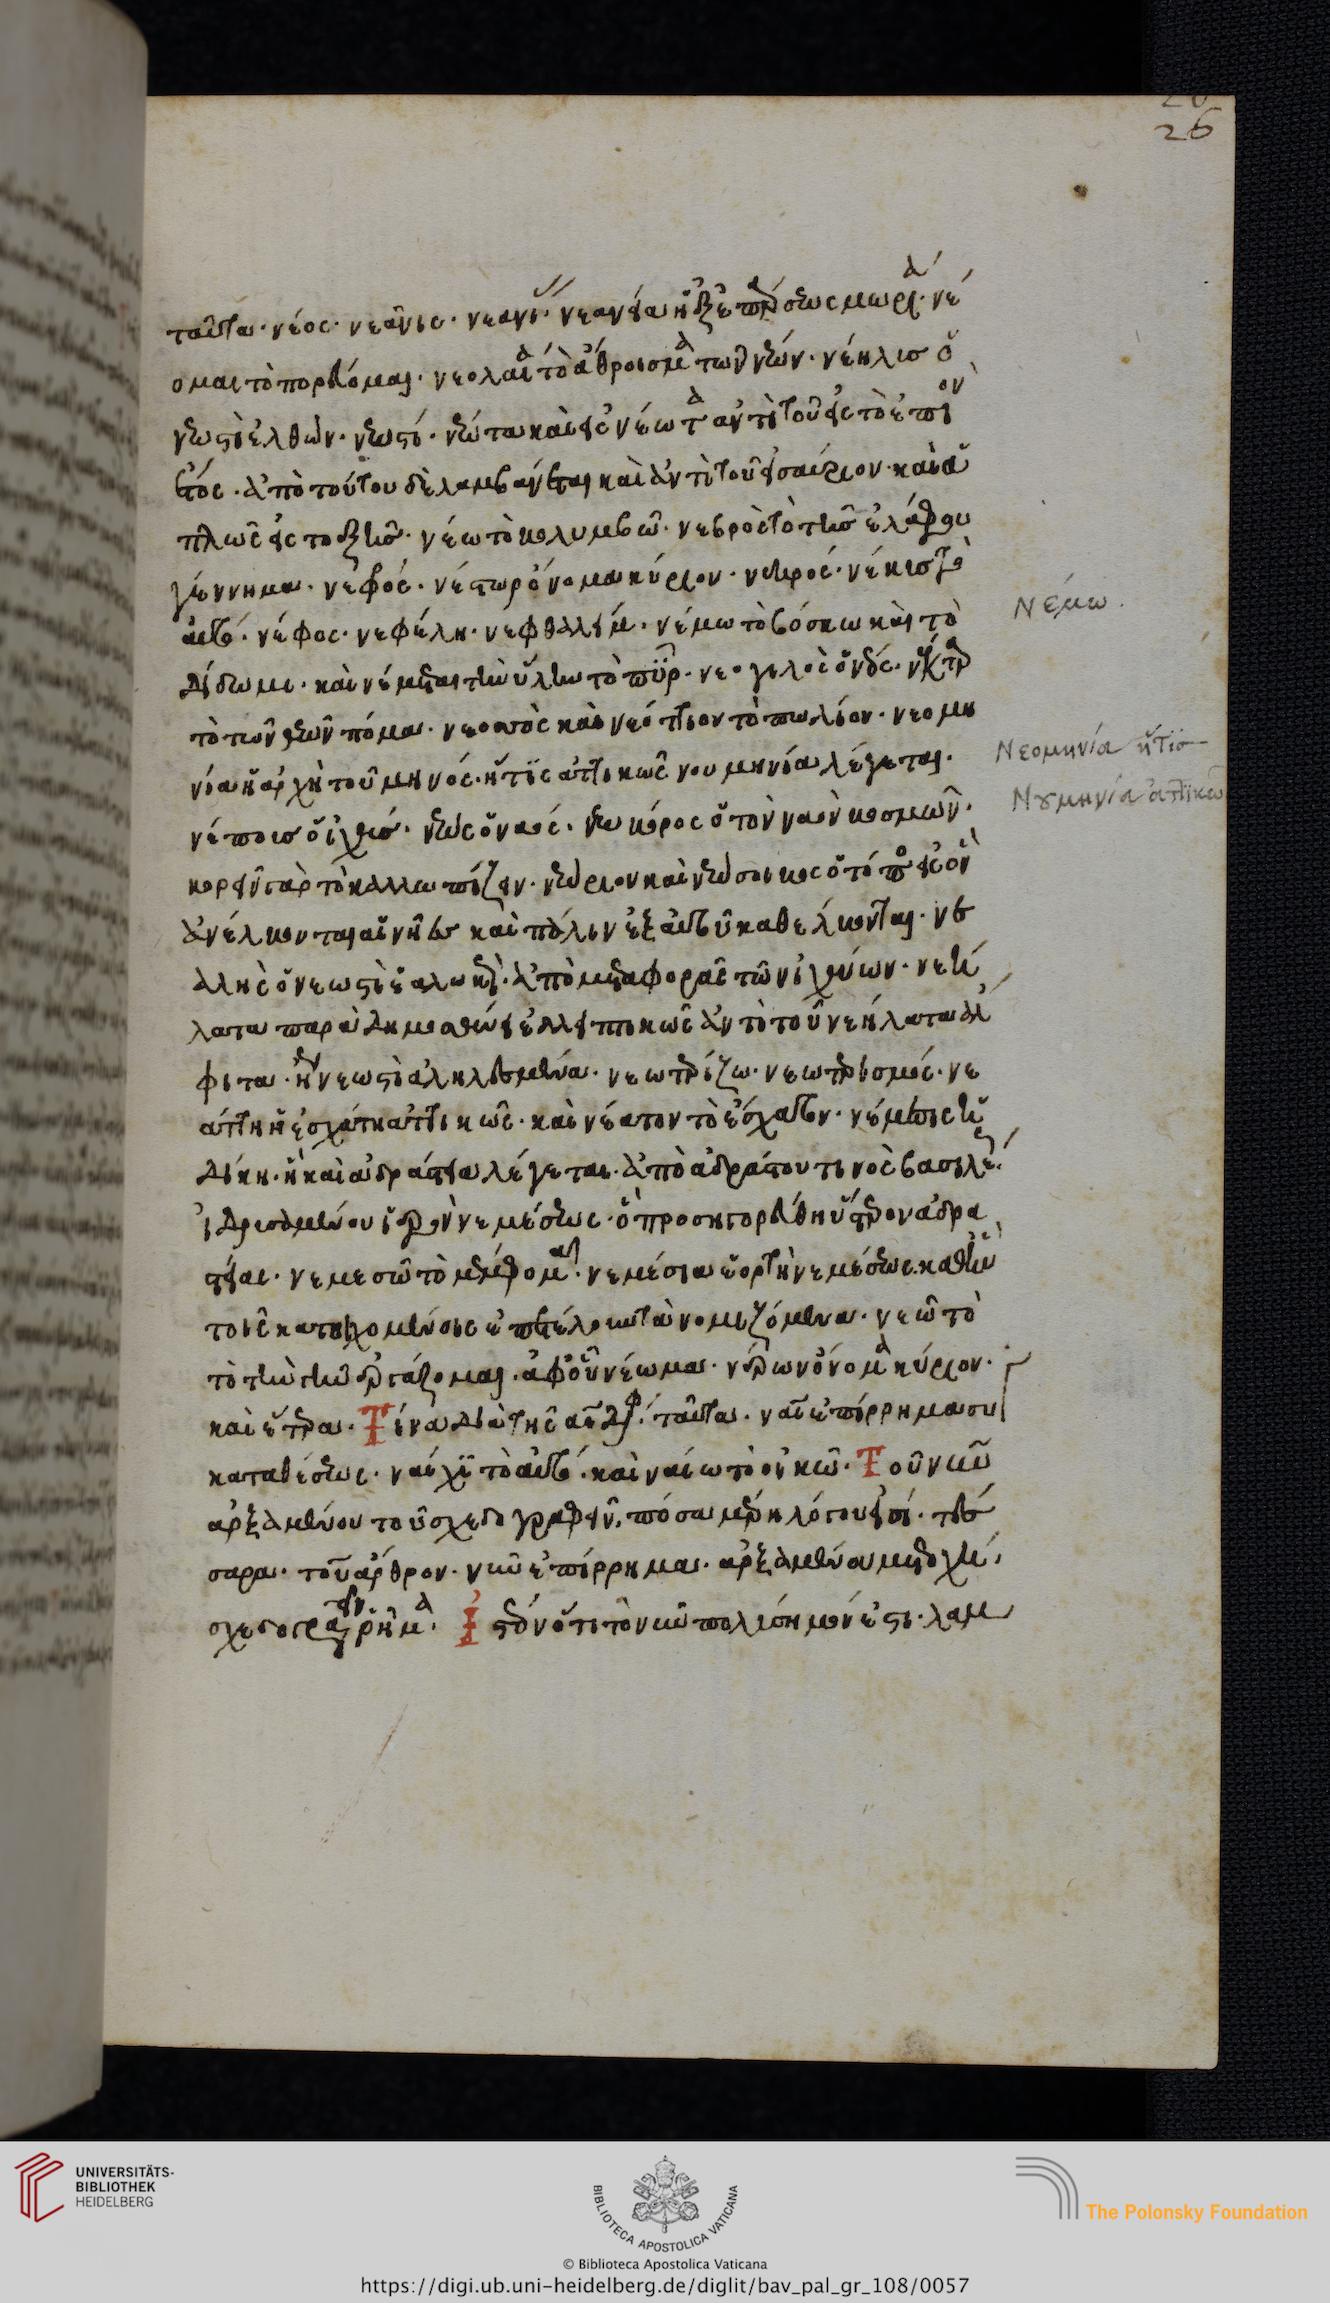 26
ταῦτα· νέος· νεᾶνις· νεανι νεανεία ἡ μωρία· νέ
ομαι τὸ πορεύομαι· νεολαία τὸ ἄθροισμα τῶν νέων· νέηλισ ὁ
νεωστὶ ἐλθών· νεωστί· νέωτα καὶ εἰς νέωτα ἀντὶ τοῦ εἰς τὸ ἐπιὸν
ἔτος· ἀπὸ τούτου δὲ λαμβάνεται καὶ ἀντὶ τοῦ εἰσαύριον· καὶ ἁ
πλῶς εἰς τὸ ἑξῆς· νέω τὸ κολυμβῶ· νεβρὸς τὸ τῆς ἐλάφου
γέννημα· νεφρός· νέστωρ ὄνομα κύριον· νεκρός· νέκταρ τὸ
αὐτό· νέφος· νεφέλη· νεφθαλείμ· νέμω τὸ βόσκω καὶ τὸ
δίδωμι· καὶ νέμεται τὴν ὕλην τὸ πῦρ· νεογιλὸς ὀδούς· νέκταρ
τὸ τῶν θεῶν πόμα· νεοσσὸς καὶ νεόττιον τὸ πωλίον· νεομη
νία ἡ ἀρχὴ τοῦ μηνός· ἥτις ἀττικῶς νουμηνία λέγεται·
νέποισ ὁ ἰχθύς· νεὼς ὁ ναός· νεωκόρος ὁ τὸν ναὸν κοσμῶν·
κορεῖν γὰρ τὸ καλλωπίζειν· νεώριον καὶ νεώσοικος ὁ τόπος εἰς ὃν
ἀνέλκονται αἱ νῆες καὶ πάλιν ἐξ αὐτοῦ καθέλκονται· νε
αλὴς ὁ νεωστὶ ἑαλωκώς· ἀπὸ μεταφορᾶς τῶν ἰχθύων· νεή
λατα παρὰ δημοσθένει ἐλλειπτικῶς ἀντὶ τοῦ νεήλατα ἄλ
φιτα· ἤγουν νεωστὶ ἀληλεσμένα· νεωτερίζω· νεωτερισμός· νε
άτη ἡ ἐσχάτη ἀττικῶς· καὶ νέατον τὸ ἔσχατον· νέμεσις ἡ
δίκη· ἣ καὶ ἀδράστεια λέγεται· ἀπὸ ἀδράστου τινὸς βασιλέως
ἱδρυσαμένου ἱερὸν νεμέσεως· ὃ προσηγορεύθη ὕστερον ἀδρα
στείας· νεμεσῶ τὸ μέμφομαι· νεμέσια ἑορτὴ νεμέσεως καθ' ἣν
τοῖς κατοιχομένοις ἐπετέλουν τὰ νομιζόμενα· νεῶ τὸ
τὸ τὴν γῆν ἐργάζομαι· ἀφ' οὗ νέωμαι· νέρων ὄνομα κύριον·
καὶ ἕτερα· Τίνα διὰ τῆς αι διφθόγγου· ταῦτα· ναὶ ἐπίρρημα συγ
καταθέσεως· ναίχι τὸ αὐτό· καὶ ναίω τὸ οἰκῶ· Τοῦ νῦν
ἀρξαμένου τοῦ σχεδογραφεῖν, πόσα μέρη λόγου εἰσί· τέσ
σαρα· τοῦ ἄρθρον· νῦν ἐπίρρημα· ἀρξαμένου μετοχή·
σχεδογραφεῖν ῥῆμα· Ἰστέον ὅτι τὸ νῦν πολύσημόν ἐστι· λαμ
Νέμω.
Νεομηνία ἥτισ
Νουμηνία ἀττικῶσ
UNIVERSITÄTS-
BIBLIOTHEK
HEIDELBERG
BIBLIOTECA APOSTOLICA VATICANA
The Polonsky Foundation
© Biblioteca Apostolica Vaticana
https://digi.ub.uni-heidelberg.de/diglit/bav_pal_gr_108/0057